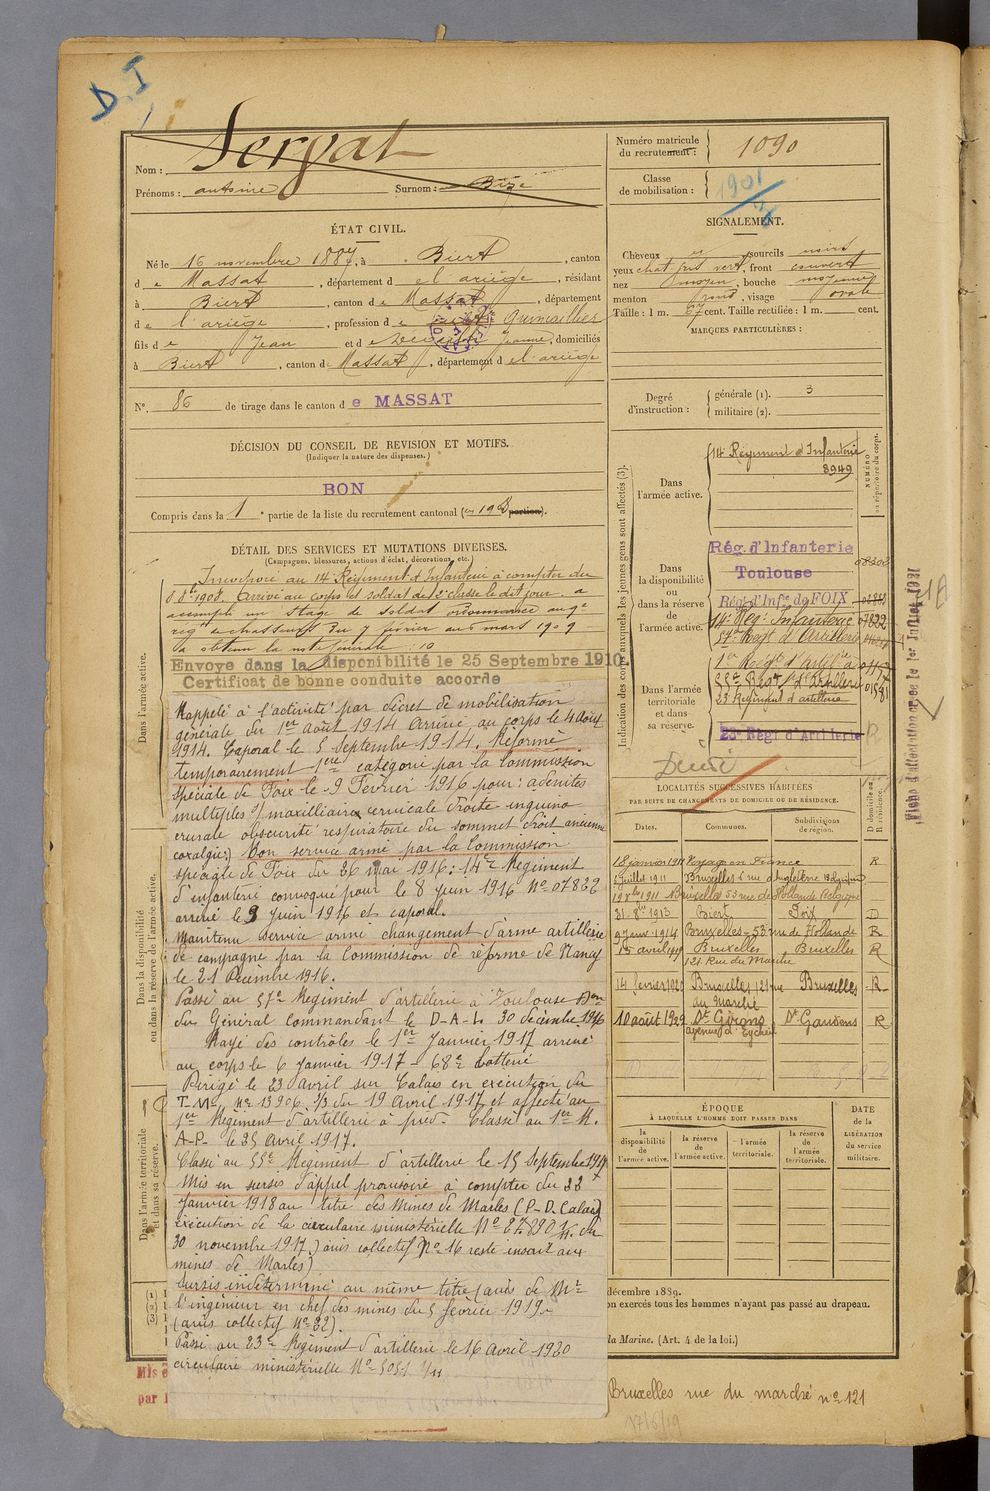 D.I
Nom : Servat
Prénoms : antoine Surnom : Bizé
Numéro matricule du recrutement : 1090
Classe de mobilisation : 1901
ÉTAT CIVIL.
Né le 16 novembre 1887, à Biert, canton
de Massat, département de l'ariège, résidant
à Biert, canton de Massat, département
de l'ariège, profession de Quincaillier
fils de Jean et de Jeanne, domiciliés
à Biert, canton de Massat, département de l'ariège
N°. 86 de tirage dans le canton de MASSAT
SIGNALEMENT.
Cheveux , sourcils noirs
yeux chat. gris vert, front couvert
nez moyen, bouche moyenne
menton rond, visage ovale
Taille : 1 m. 67 cent. Taille rectifiée : 1 m. cent.
MARQUES PARTICULIÈRES :
DÉCISION DU CONSEIL DE REVISION ET MOTIFS.
(Indiquer la nature des dispenses.)
BON
Compris dans la 1e partie de la liste du recrutement cantonal
Degré d'instruction : générale (1). 3
militaire (2).
DÉTAIL DES SERVICES ET MUTATIONS DIVERSES.
(Campagnes, blessures, actions d'éclat, décorations, etc.)
Incorporé au 14e Régiment d'Infanterie à compter du
8 8bre 1908. Arrivé au corps et soldat de 2e classe le dit jour. a
accompli un stage de soldat ordonnance au 9e
rég de chasseurs du 7 février au 6 mars 1909
a obtenu la note générale : 10
Envoyé dans la disponibilité le 25 Septembre 1910.
Certificat de bonne conduite accordé
Rappelé à l'activité par décret de mobilisation
générale du 1er Août 1914 arrivé au corps le 4 Août
1914. Caporal le 5 Septembre 1914. Réformé
temporairement 1ère catégorie par la Commission
spéciale de Foix le 9 Février 1916 pour : adénites
multiples s/ maxilliaire cervicale droite inguino
crurale obscurité respiratoire du sommet droit ancienne
coxalgie) Bon service armé par la Commission
spéciale de Foix du 26 mai 1916 : 14e Régiment
d'infanterie convoqué pour le 8 juin 1916 No 07822
arrivé le 9 Juin 1916 et caporal.
Maintenu service armé changement d'arme artillerie
de campagne par la Commission de réforme de Nancy
le 21 Décembre 1916.
Passé au 57e Régiment d'artillerie à Toulouse Don
du Général Commandant le D-A-L 30 décembre 1916
Rayé des contrôles le 1er Janvier 1917 arrivé
au corps le 6 Janvier 1917 - 68e batterie
Dirigé le 23 Avril sur Calais en exécution du
T.M. No 13906 3/3 du 19 Avril 1917 et affecté au
1er Régiment d'artillerie à pied. Classé au 1er R.
A-P- le 25 Avril 1917.
Classé au 55e Régiment d'artillerie le 15 Septembre 1917
Mis en sursis d'appel provisoire à compter du 22
Janvier 1918 au titre des Mines de Marles (P-D-Calais)
exécution de la circulaire ministérielle No 87890 du
30 novembre 1917.) avis collectif No 16 reste inscrit aux
mines de Marles)
Sursis indéterminé au même titre (avis de Mr
l'ingénieur en chef des mines du 5 février 1919
(avis collectif No 22).
Passé au 23e Régiment d'artillerie le 16 Avril 1920
circulaire ministérielle No 5051 1/11
Indication des corps auxquels les jeunes gens sont affectés (3).
NUMÉRO au répertoire du corps.
Dans l'armée active. 14e Régiment d'Infanterie 8949
Dans la disponibilité ou dans la réserve de l'armée active.
Rég. d'Infanterie Toulouse
Régt d'Infie de FOIX
14e Rég. Infanterie 07822
57e Régt d'Artillerie
Dans l'armée territoriale et dans sa réserve.
1er Régt d'Art à pied 01157
55e Régt d'Artillerie 01591
23 Régiment d'artillerie
23e Régt d'Artillerie
Fiche d'affectation créée le 1er Juillet 1921
Dans l'armée active.
Dans la disponibilité ou dans la réserve de l'armée active.
Dans l'armée territoriale et dans sa réserve.
LOCALITÉS SUCCESSIVES HABITÉES
PAR SUITE DE CHANGEMENTS DE DOMICILE OU DE RÉSIDENCE.
D domicile ou R résidence.
Dates. Communes. Subdivisions de région.
18 janvier 1911 Voyage en France R
Juillet 1911 Bruxelles rue d'Angleterre Belgique
1911 Bruxelles 53 rue de Hollande Belgique
31 8bre 1913 Biert Foix D
9 janv 1914 Bruxelles - 53 rue de Hollande R
15 avril 1919 Bruxelles Bruxelles R
121 Rue du Marché
14 février 1920 Bruxelles 121 rue Bruxelles R
du Marché
10 août 1929 St Girons St Gaudens R
avenue d'Eycheil
ÉPOQUE
À LAQUELLE L'HOMME DOIT PASSER DANS
la disponibilité de l'armée active.
la réserve de l'armée active.
l'armée territoriale.
la réserve de l'armée territoriale.
DATE de la LIBÉRATION du service militaire.
(1)
(2)
(3)
décembre 1889.
on exercés tous les hommes n'ayant pas passé au drapeau.
la Marine. (Art. 4 de la loi.)
Mis e
par l
Bruxelles rue du marché no 121
17/6/19